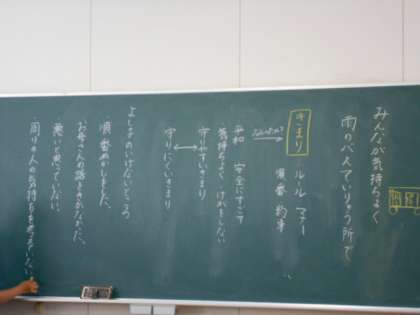 みんなが気持ちよく
雨のバスていりゅう所で
きまり
ルール マナー
順番 約束
なんのため?
平和 安全にすごす
気持ちよく けがをしない
守りやすいきまり
守りにくいきまり
よし子のいけないところ
・順番ぬかしをした。
・お母さんの話をきかなかった。
・悪いと思っていない。
・周りの人の気持ちを考えていない。